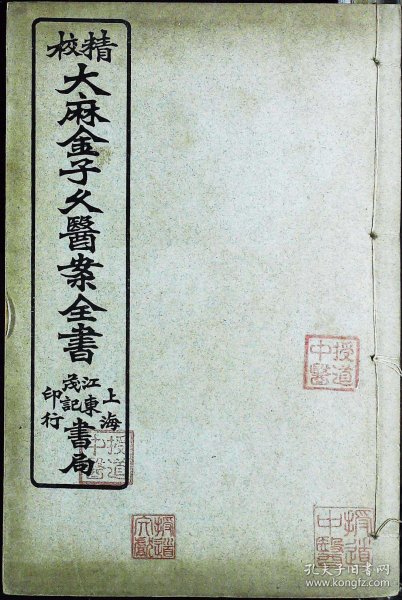 精校
大麻金子久醫案全書
上海
江東
茂記
書局
印行
授道中醫
授道中醫
授道中醫
孔夫子旧书网
www.kongfz.com